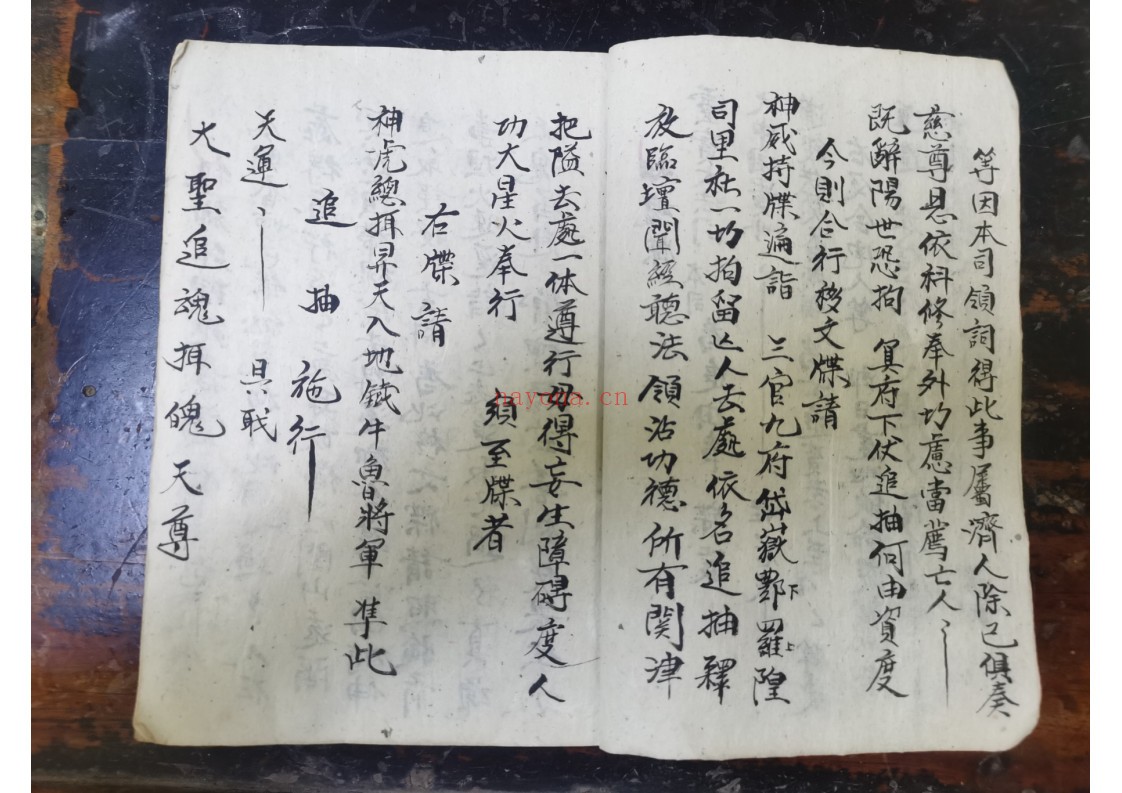 等因本司領詞得此事屬濟人除已俱奏
慈尊恩依科修奉外切慮當薦亡人
既辭陽世恐拘　冥府下伏追抽何由資度
今則合行移文牒請
神威持牒遍詣　三官九府岱嶽酆下羅上隍
司里社一切拘留亡人去處依名追抽釋
放臨壇聞經聽法領沾功德所有関津
把隘去處一体遵行毋得妄生障碍度人
功大星火奉行　須至牒者
右牒請
神虎總䎶昇天入地鉄牛魯將軍　準此
追抽　施行
天運　具戢
大聖追魂䎶魄天尊
nayona.cn